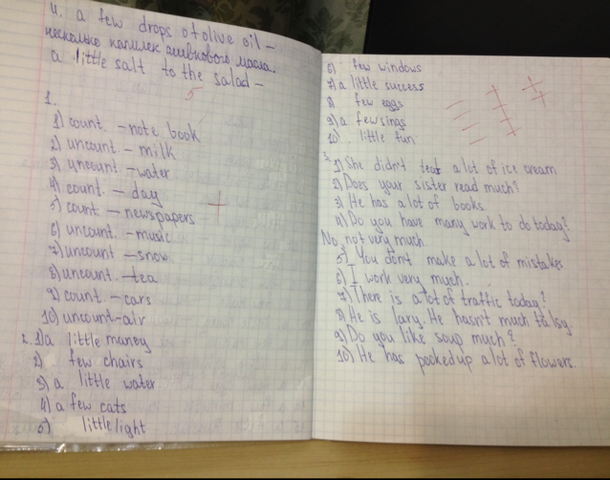 4. a few drops of olive oil –
несколько капилек оливкового масла.
a little salt to the salad –
5
1.
1) count. – note book
2) uncount. – milk
3) uncount – water
4) count. – day
5) count. – newspapers
6) uncount. – music
7) uncount – snow
8) uncount. – tea
9) count – cars
10) uncount – air
2. 1) a little money
2) few chairs
3) a little water
4) a few cats
5) little light
6) few windows
7) a little success
8) few eggs
9) a few sings
10) little fun
3. 1) She didn't a lot of ice cream
2) Does your sister read much?
3) He has a lot of books.
4) Do you have many work to do today?
No, not very much
5) You don't make a lot of mistakes
6) I work very much.
7) There is a lot of traffic today?
8) He is lary. He hasn't much
9) Do you like soup much?
10) He has pocked up a lot of flowers.